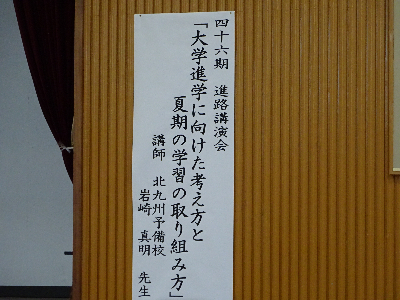 四十六期 進路講演会
「大学進学に向けた考え方と
夏期の学習の取り組み方」
講師 北九州予備校
岩崎 真明 先生